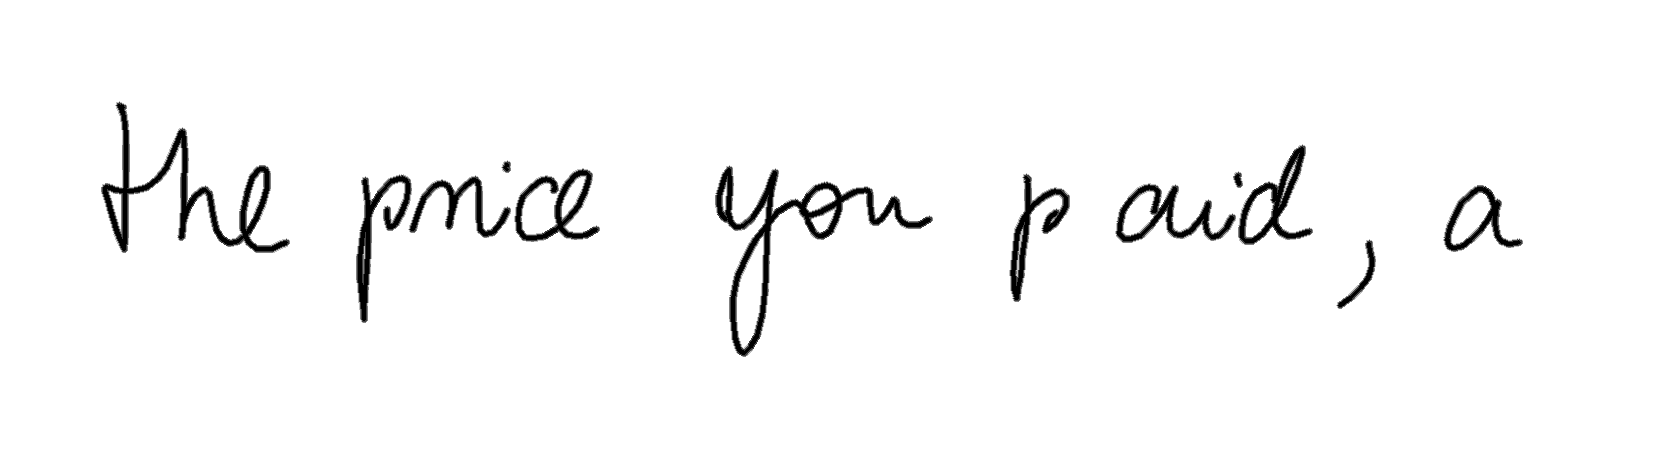 the price you paid, a